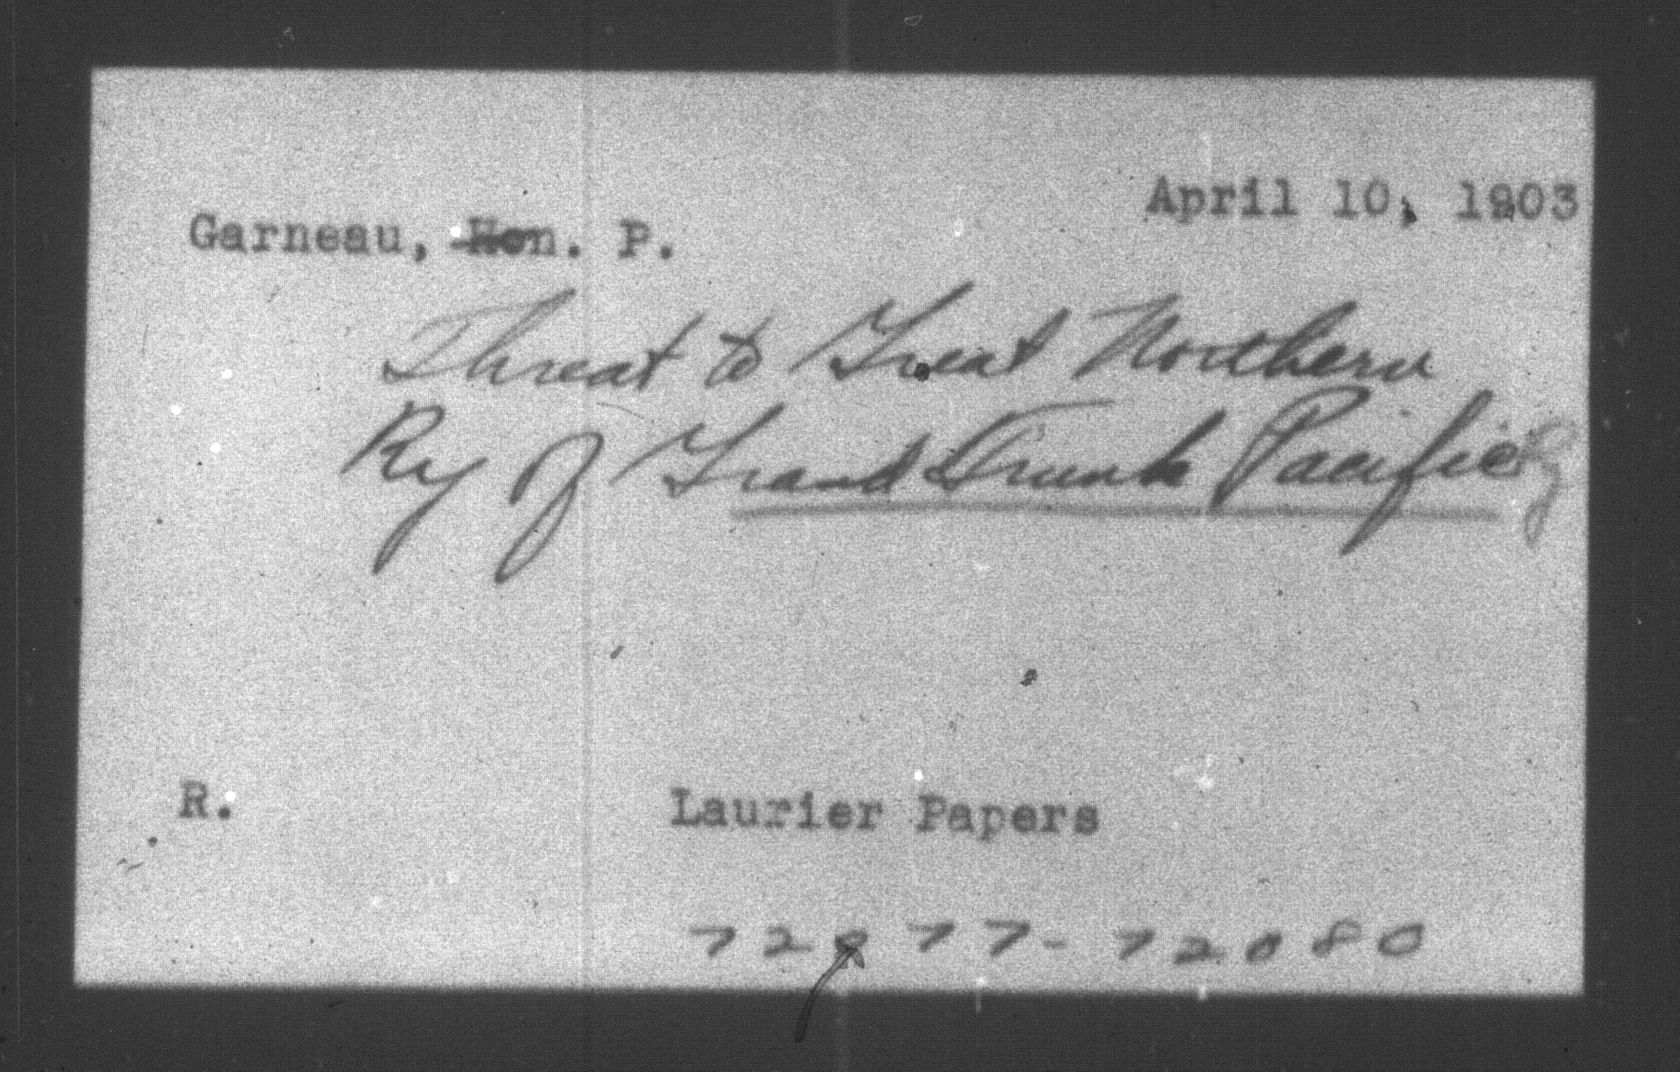 April 10, 1903
Garneau, Hon. P.
Threat to Great Northern
Ry of Grand Trunk Pacific Ry
R.
Laurier Papers
72077-72080